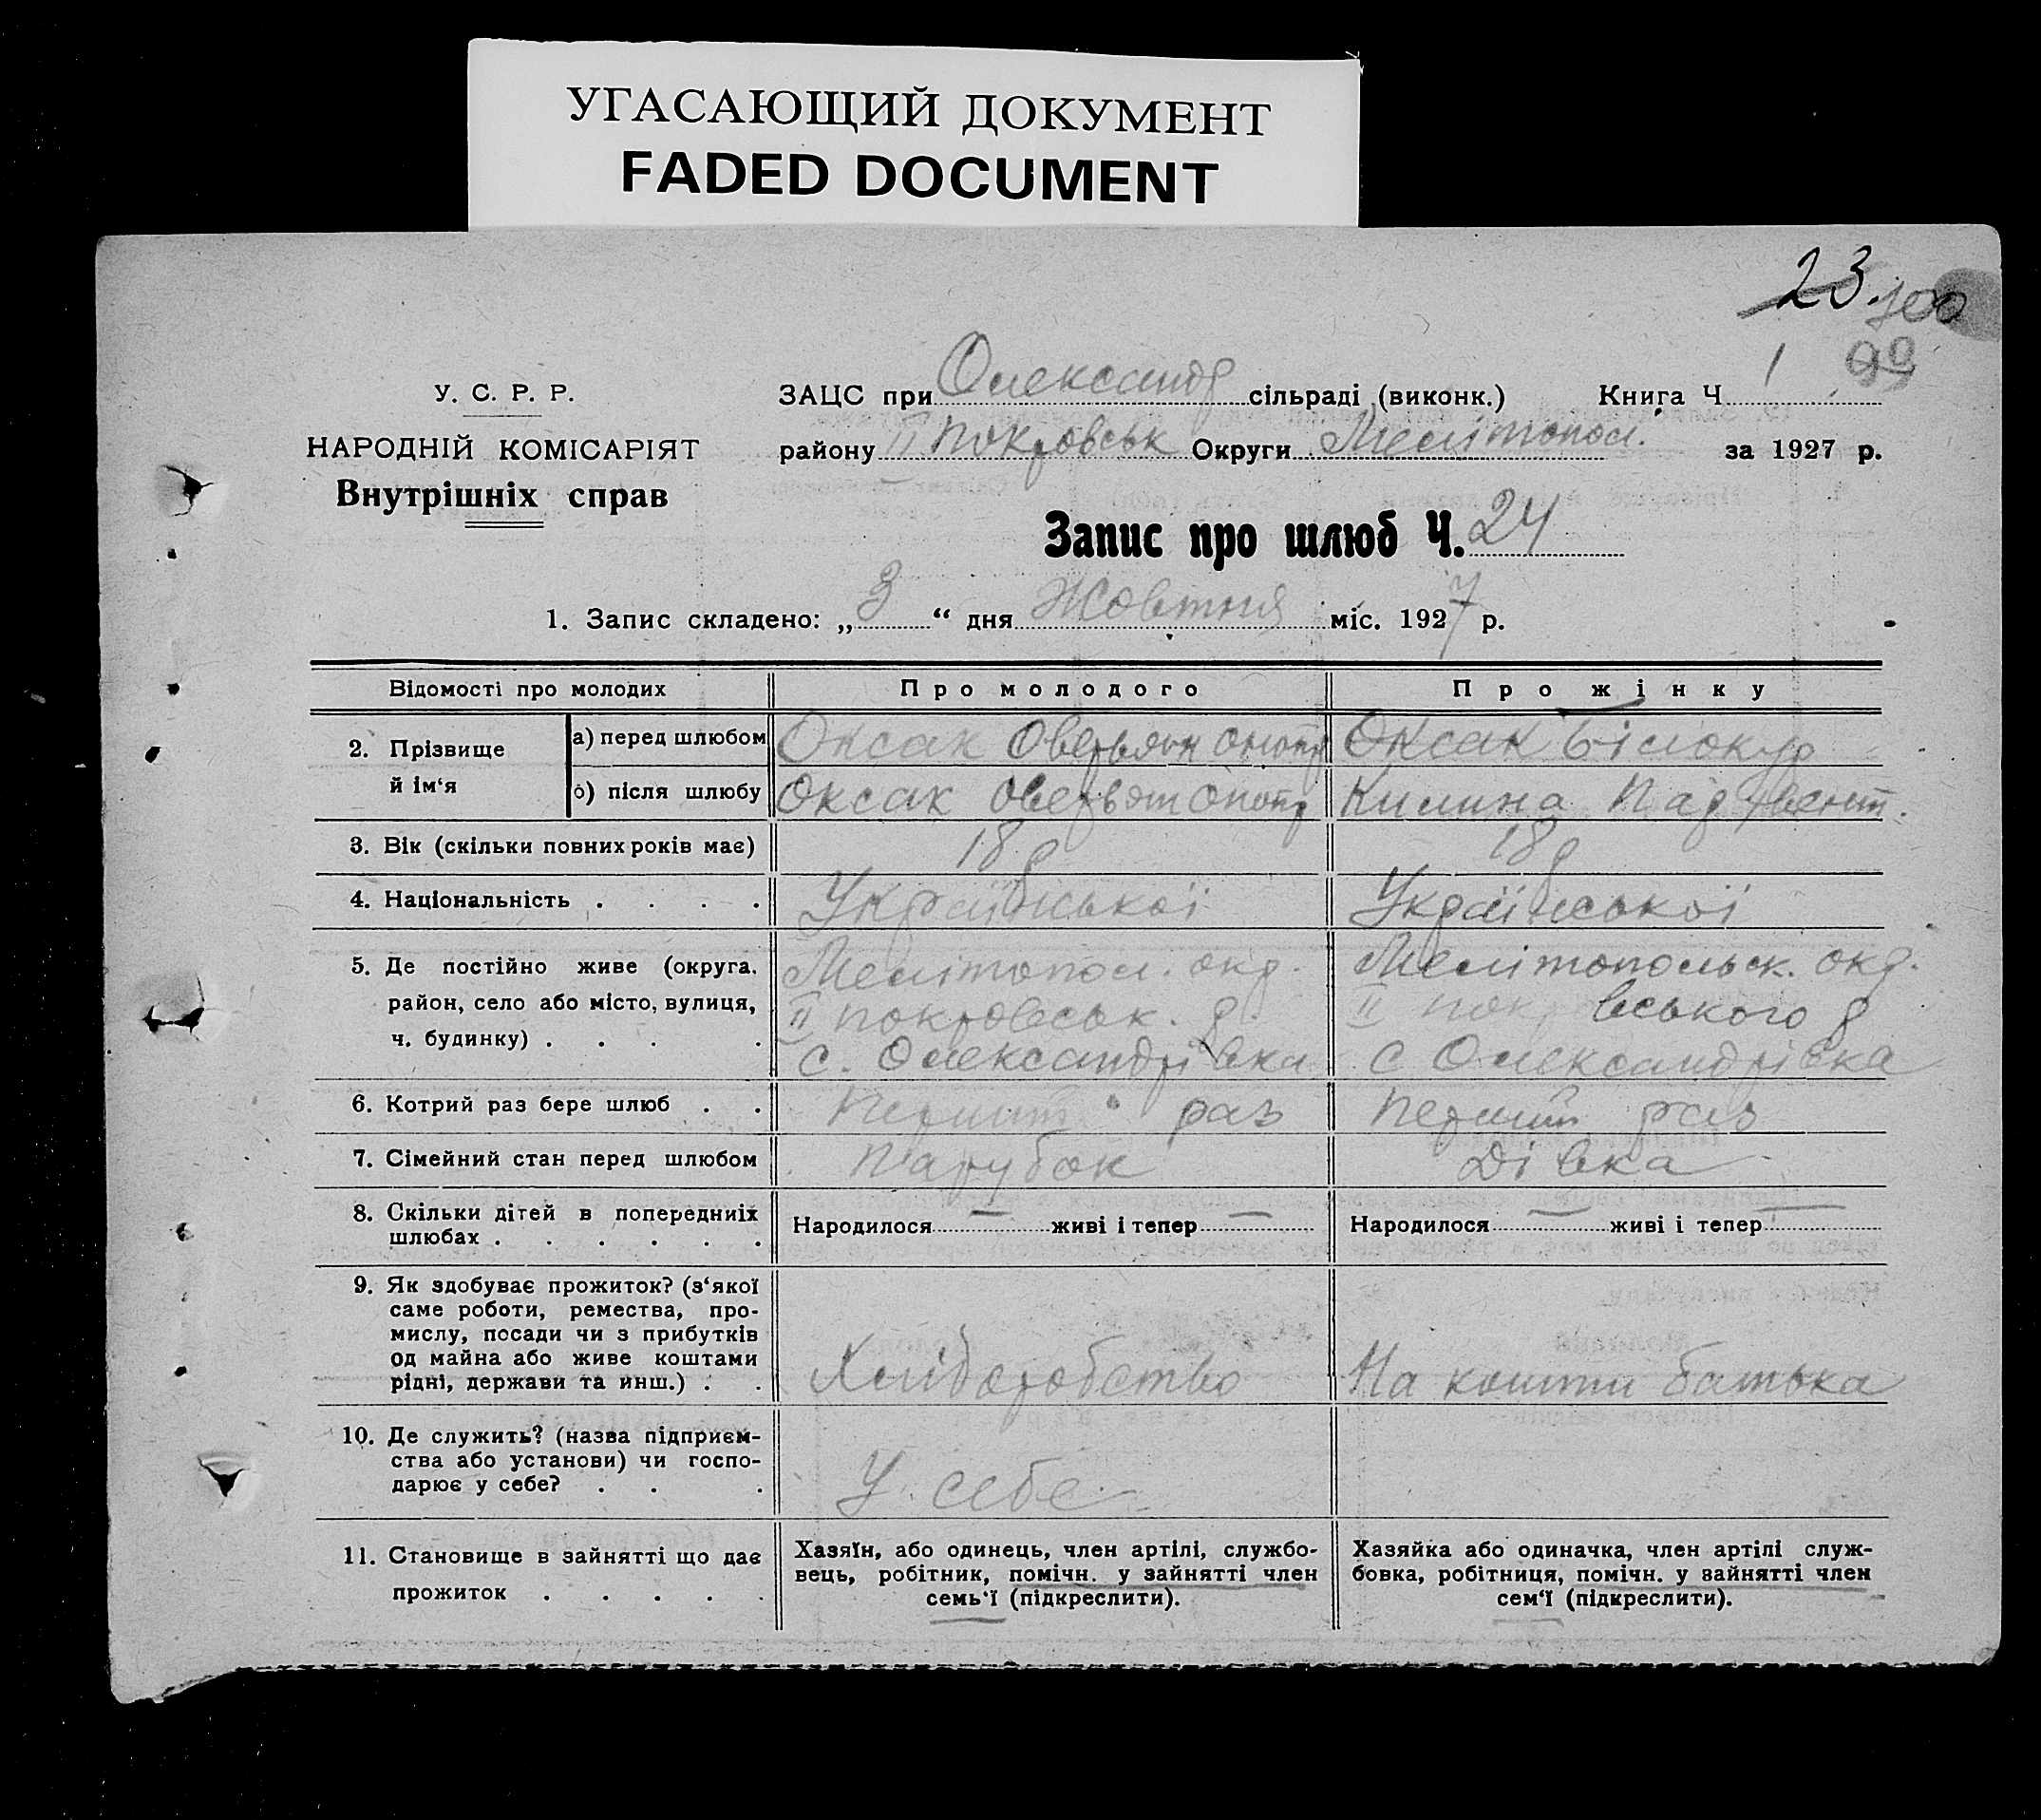 УГАСАЮЩИЙ ДОКУМЕНТ
FADED DOCUMENT
23. 100
99
У. С. Р. Р.
НАРОДНІЙ КОМІСАРІЯТ
Внутрішніх справ
ЗАЦС при Олександр сільраді (виконк.) Книга Ч 1
району ІІ Покровськ Округи Мелітопол. за 1927 р.
Запис про шлюб Ч. 24
1. Запис складено: „ 3 “ дня Жовтня міс. 1927 р.
Відомості про молодих Про молодого Про жінку
2. Прізвище й ім‘я
а) перед шлюбом Оксак Оверьян Оксак Білокур
б) після шлюбу Оксак Килина
3. Вік (скільки повних років має) 18 р 18 р
4. Національність . . . . Української Української
5. Де постійно живе (округа, район, село або місто, вулиця, ч. будинку) . . . .
Мелітопол. окр. Мелітопольск. окр.
ІІ Покровськ. р. ІІ Пок вського р
с. Олександрівка с Олександрівка
6. Котрий раз бере шлюб . . Перший раз Перший раз
7. Сімейний стан перед шлюбом Парубок Дівка
8. Скільки дітей в попередніх
шлюбах . . . . . . Народилося — живі і тепер — Народилося — живі і тепер —
9. Як здобуває прожиток? (з‘якої
саме роботи, ремества, про-
мислу, посади чи з прибутків
од майна або живе коштами
рідні, держави та инш.) . . Хлідоробство На кошти батька
10. Де служить? (назва підприєм-
ства або установи) чи госпо-
дарює у себе? . . . У себе
11. Становище в зайнятті що дає
прожиток . . . . .
Хазяїн, або одинець, член артілі, службо-
вець, робітник, помічн. у зайнятті член
семь‘ї (підкреслити).
Хазяйка або одиначка, член артілі служ-
бовка, робітниця, помічн. у зайнятті член
сем‘ї (підкреслити).